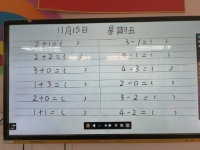 11月15日 星期五
2+1=( ) 3-1=( )
2+2=( ) 4-1=( )
3+0=( ) 4-3=( )
1+3=( ) 2-0=( )
2+0=( ) 3-2=( )
1+1=( ) 4-2=( )